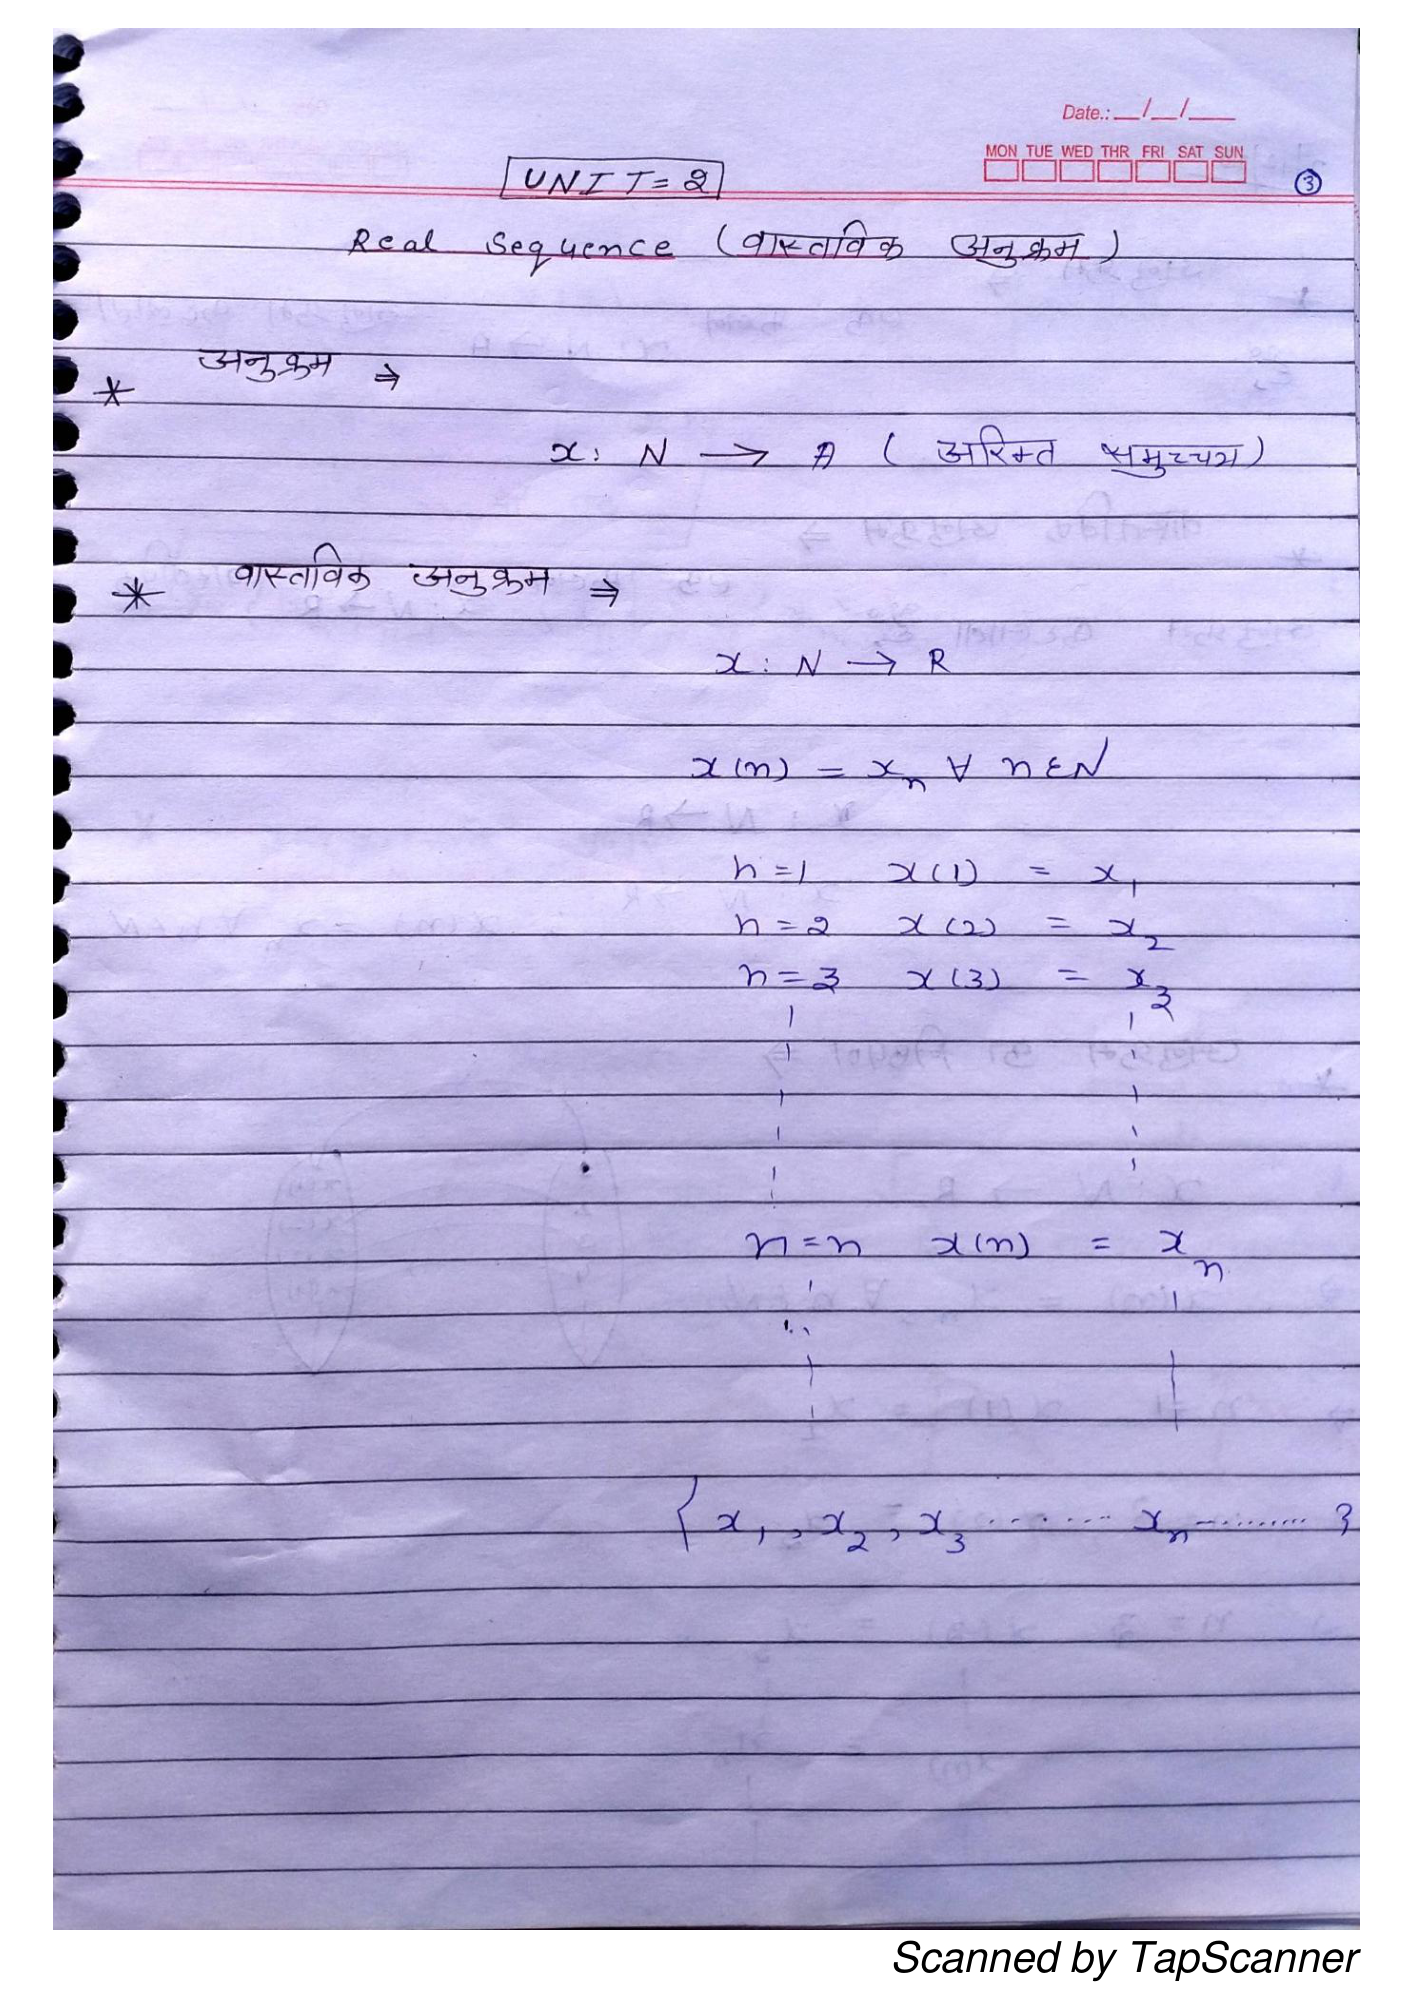 Date.: __/__/___
MON TUE WED THR FRI SAT SUN
UNIT=2
3
Real Sequence (वास्तविक अनुक्रम)
* अनुक्रम ⇒
x: N → A ( अरिक्त समुच्चय)
* वास्तविक अनुक्रम ⇒
x: N → R
x(n) = xₙ ∀ n ∈ N
n=1 x(1) = x₁
n=2 x(2) = x₂
n=3 x(3) = x₃
n=n x(n) = xₙ
{ x₁, x₂, x₃ ....... xₙ .......... }
Scanned by TapScanner